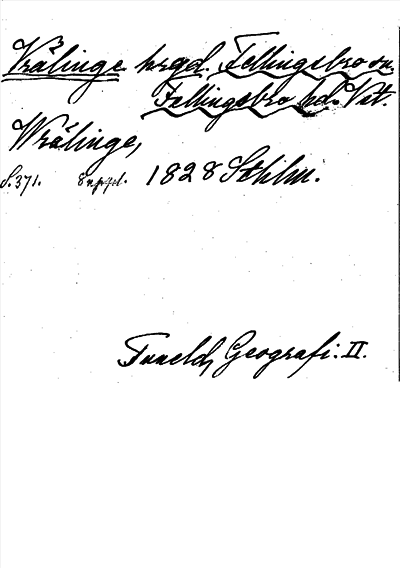 Vrålinge hrgd. Fellingsbro sn.
Fellingsbro hd. Vst.
Wrålinge,
S. 371. 1828 Sthlm.
Tuneld, Geografi. II.